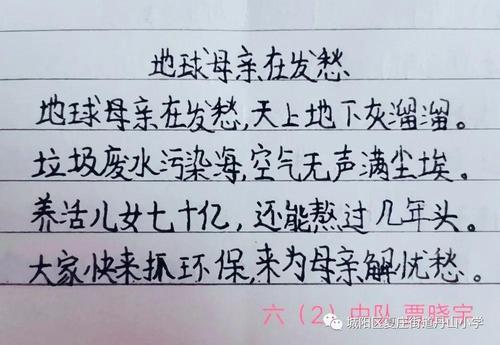 地球母亲在发愁
地球母亲在发愁,天上地下灰溜溜。
垃圾废水污染海,空气无声满尘埃。
养活儿女七十亿，还能熬过几年头。
大家快来抓环保,来为母亲解忧愁。
六（2）中队 贾晓宇
城阳区夏庄街道丹山小学